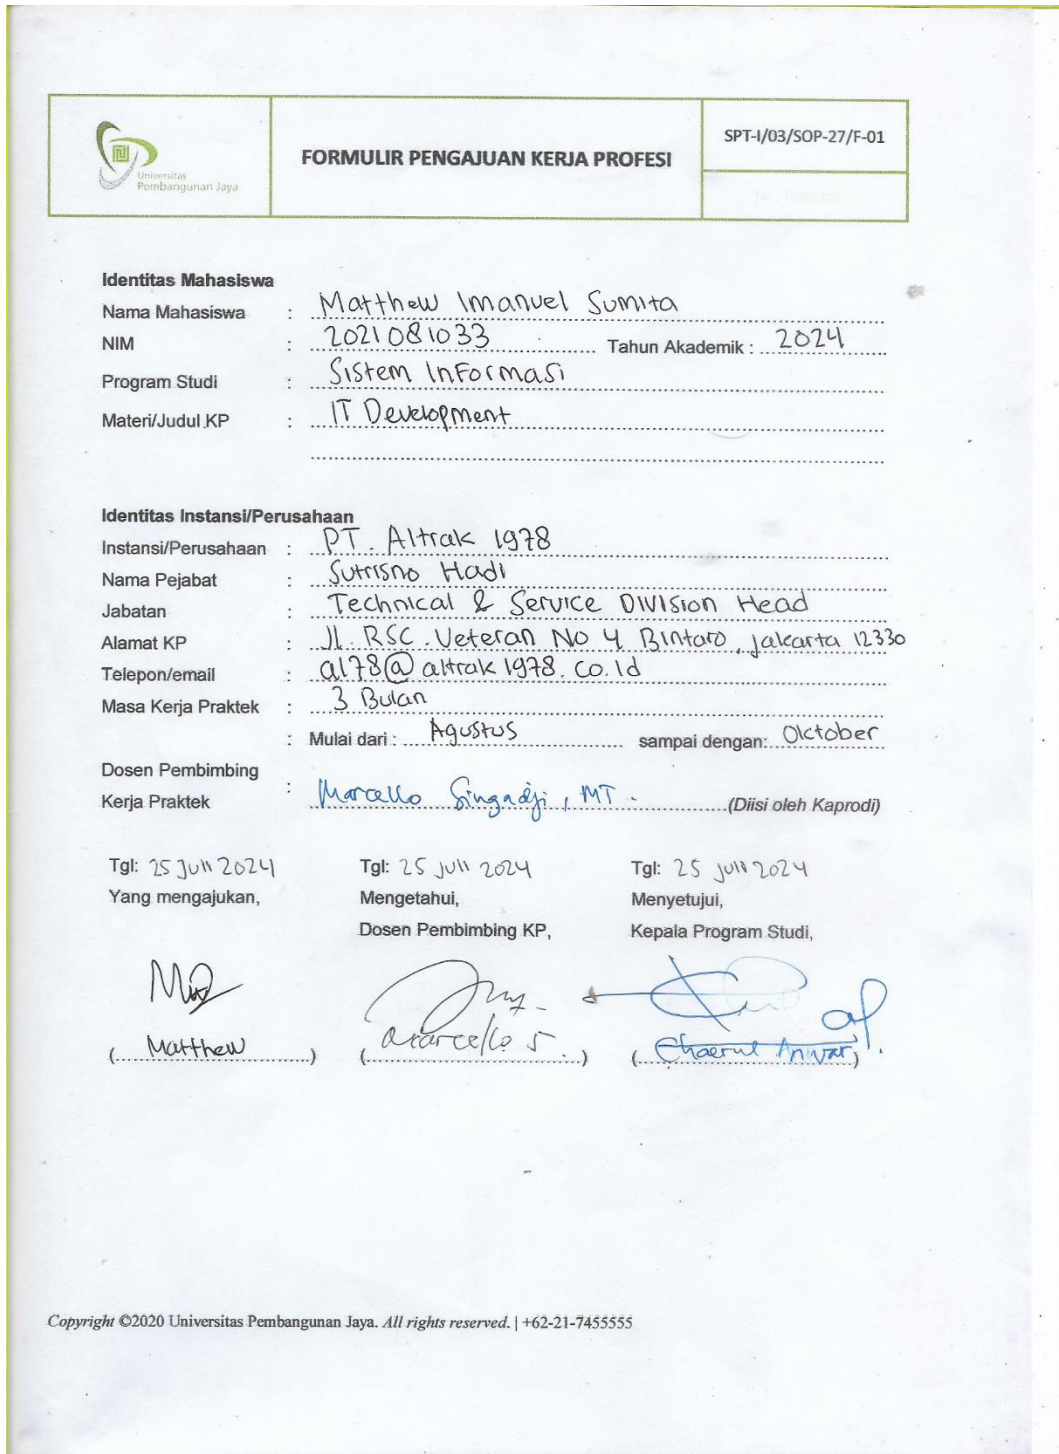 Universitas
Pembangunan Jaya
FORMULIR PENGAJUAN KERJA PROFESI
SPT-I/03/SOP-27/F-01
Identitas Mahasiswa
Nama Mahasiswa : Matthew Imanuel Sumita
NIM : 2021081033 Tahun Akademik : 2024
Program Studi : Sistem Informasi
Materi/Judul KP : IT Development
Identitas Instansi/Perusahaan
Instansi/Perusahaan : PT. Altrak 1978
Nama Pejabat : Sutrisno Hadi
Jabatan : Technical & Service Division Head
Alamat KP : Jl. RSC. Veteran No 4 Bintaro, Jakarta 12330
Telepon/email : al78@altrak1978.co.id
Masa Kerja Praktek : 3 Bulan
: Mulai dari : Agustus sampai dengan: Oktober
Dosen Pembimbing
Kerja Praktek : Marcello Singadji, MT. (Diisi oleh Kaprodi)
Tgl: 25 Juli 2024 Tgl: 25 Juli 2024 Tgl: 25 Juli 2024
Yang mengajukan, Mengetahui, Menyetujui,
Dosen Pembimbing KP, Kepala Program Studi,
(Matthew) (Marcello S.) (Chaerul Anwar)
Copyright ©2020 Universitas Pembangunan Jaya. All rights reserved. | +62-21-7455555